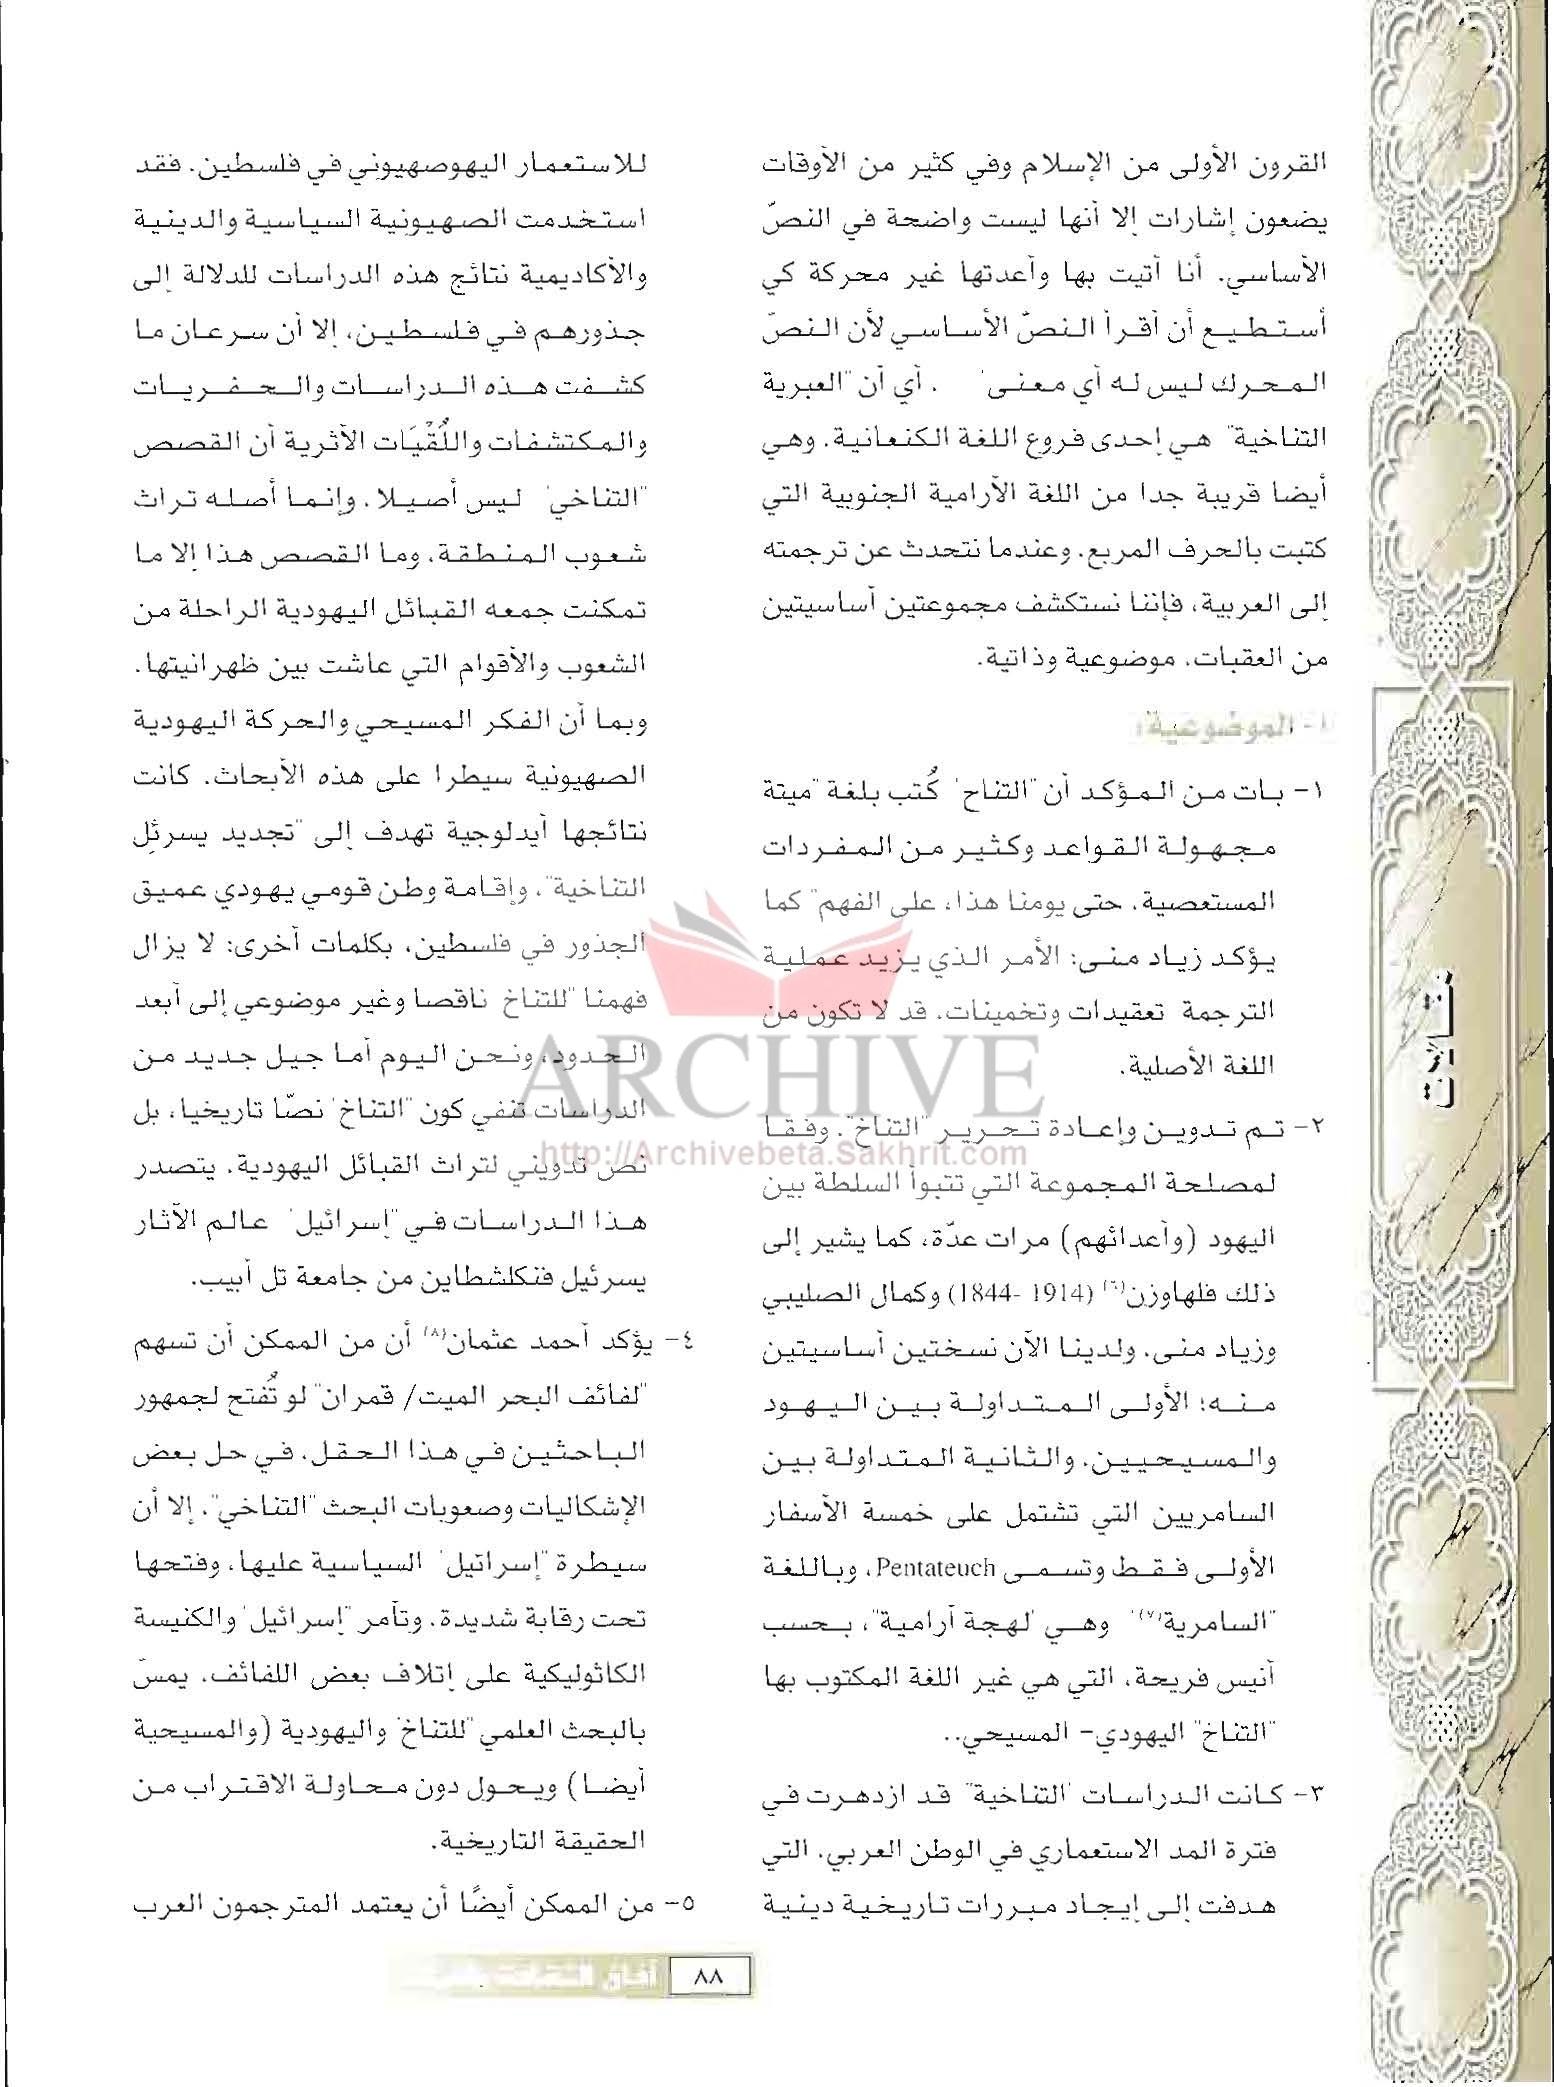 القرون الأولى من الإسلام وفي كثير من الأوقات
يضعون إشارات إلا أنها ليست واضحة في النصّ
الأساسي. أنا أتيت بها وأعدتها غير محركة كي
أستطيع أن أقرأ النصّ الأساسي لأن النصّ
المحرك ليس له أي معنى" . أي أن "العبرية
التناخية" هي إحدى فروع اللغة الكنعانية. وهي
أيضا قريبة جدا من اللغة الآرامية الجنوبية التي
كتبت بالحرف المربع. وعندما نتحدث عن ترجمته
إلى العربية، فإننا نستكشف مجموعتين أساسيتين
من العقبات. موضوعية وذاتية.
أ- الموضوعية:
١- بات من المؤكد أن "التناح" كُتب بلغة "ميتة
مجهولة القواعد وكثير من المفردات
المستعصية، حتى يومنا هذا، على الفهم" كما
يؤكد زياد منى: الأمر الذي يزيد عملية
الترجمة تعقيدات وتخمينات، قد لا تكون من
اللغة الأصلية.
٢- تم تدوين وإعادة تحرير "التناخ". وفقا
لمصلحة المجموعة التي تتبوأ السلطة بين
اليهود (وأعدائهم) مرات عدّة، كما يشير إلى
ذلك فلهاوزن(٦) (1844- 1914) وكمال الصليبي
وزياد منى. ولدينا الآن نسختين أساسيتين
منه؛ الأولى المتداولة بين اليهود
والمسيحيين. والثانية المتداولة بين
السامريين التي تشتمل على خمسة الأسفار
الأولى فقط وتسمى Pentateuch، وباللغة
"السامرية(٧)" وهي "لهجة آرامية"، بحسب
أنيس فريحة، التي هي غير اللغة المكتوب بها
"التناخ" اليهودي- المسيحي..
٣- كانت الدراسات "التناخية" قد ازدهرت في
فترة المد الاستعماري في الوطن العربي. التي
هدفت إلى إيجاد مبررات تاريخية دينية
للاستعمار اليهوصهيوني في فلسطين. فقد
استخدمت الصهيونية السياسية والدينية
والأكاديمية نتائج هذه الدراسات للدلالة إلى
جذورهم في فلسطين، إلا أن سرعان ما
كشفت هذه الدراسات والحفريات
والمكتشفات واللُقْيَات الأثرية أن القصص
"التناخي" ليس أصيلا. وإنما أصله تراث
شعوب المنطقة، وما القصص هذا إلا ما
تمكنت جمعه القبائل اليهودية الراحلة من
الشعوب والأقوام التي عاشت بين ظهرانيتها.
وبما أن الفكر المسيحي والحركة اليهودية
الصهيونية سيطرا على هذه الأبحاث. كانت
نتائجها أيدلوجية تهدف إلى "تجديد يسرئِل
التناخية"، وإقامة وطن قومي يهودي عميق
الجذور في فلسطين، بكلمات أخرى: لا يزال
فهمنا "للتناخ" ناقصا وغير موضوعي إلى أبعد
الحدود، ونحن اليوم أما جيل جديد من
الدراسات تنفي كون "التناخ" نصّا تاريخيا، بل
نص تدويني لتراث القبائل اليهودية. يتصدر
هذا الدراسات في "إسرائيل" عالم الآثار
يسرئيل فنكلشطاين من جامعة تل أبيب.
٤- يؤكد أحمد عثمان(٨) أن من الممكن أن تسهم
"لفائف البحر الميت/ قمران" لو تُفتح لجمهور
الباحثين في هذا الحقل، في حل بعض
الإشكاليات وصعوبات البحث "التناخي". إلا أن
سيطرة "إسرائيل" السياسية عليها، وفتحها
تحت رقابة شديدة. وتآمر "إسرائيل" والكنيسة
الكاثوليكية على إتلاف بعض اللفائف، يمسّ
بالبحث العلمي "للتناخ" واليهودية (والمسيحية
أيضا) ويحول دون محاولة الاقتراب من
الحقيقة التاريخية.
٥- من الممكن أيضًا أن يعتمد المترجمون العرب
مقالات
ARCHIVE
http://Archivebeta.Sakhrit.com
٨٨
آفاق الثقافة